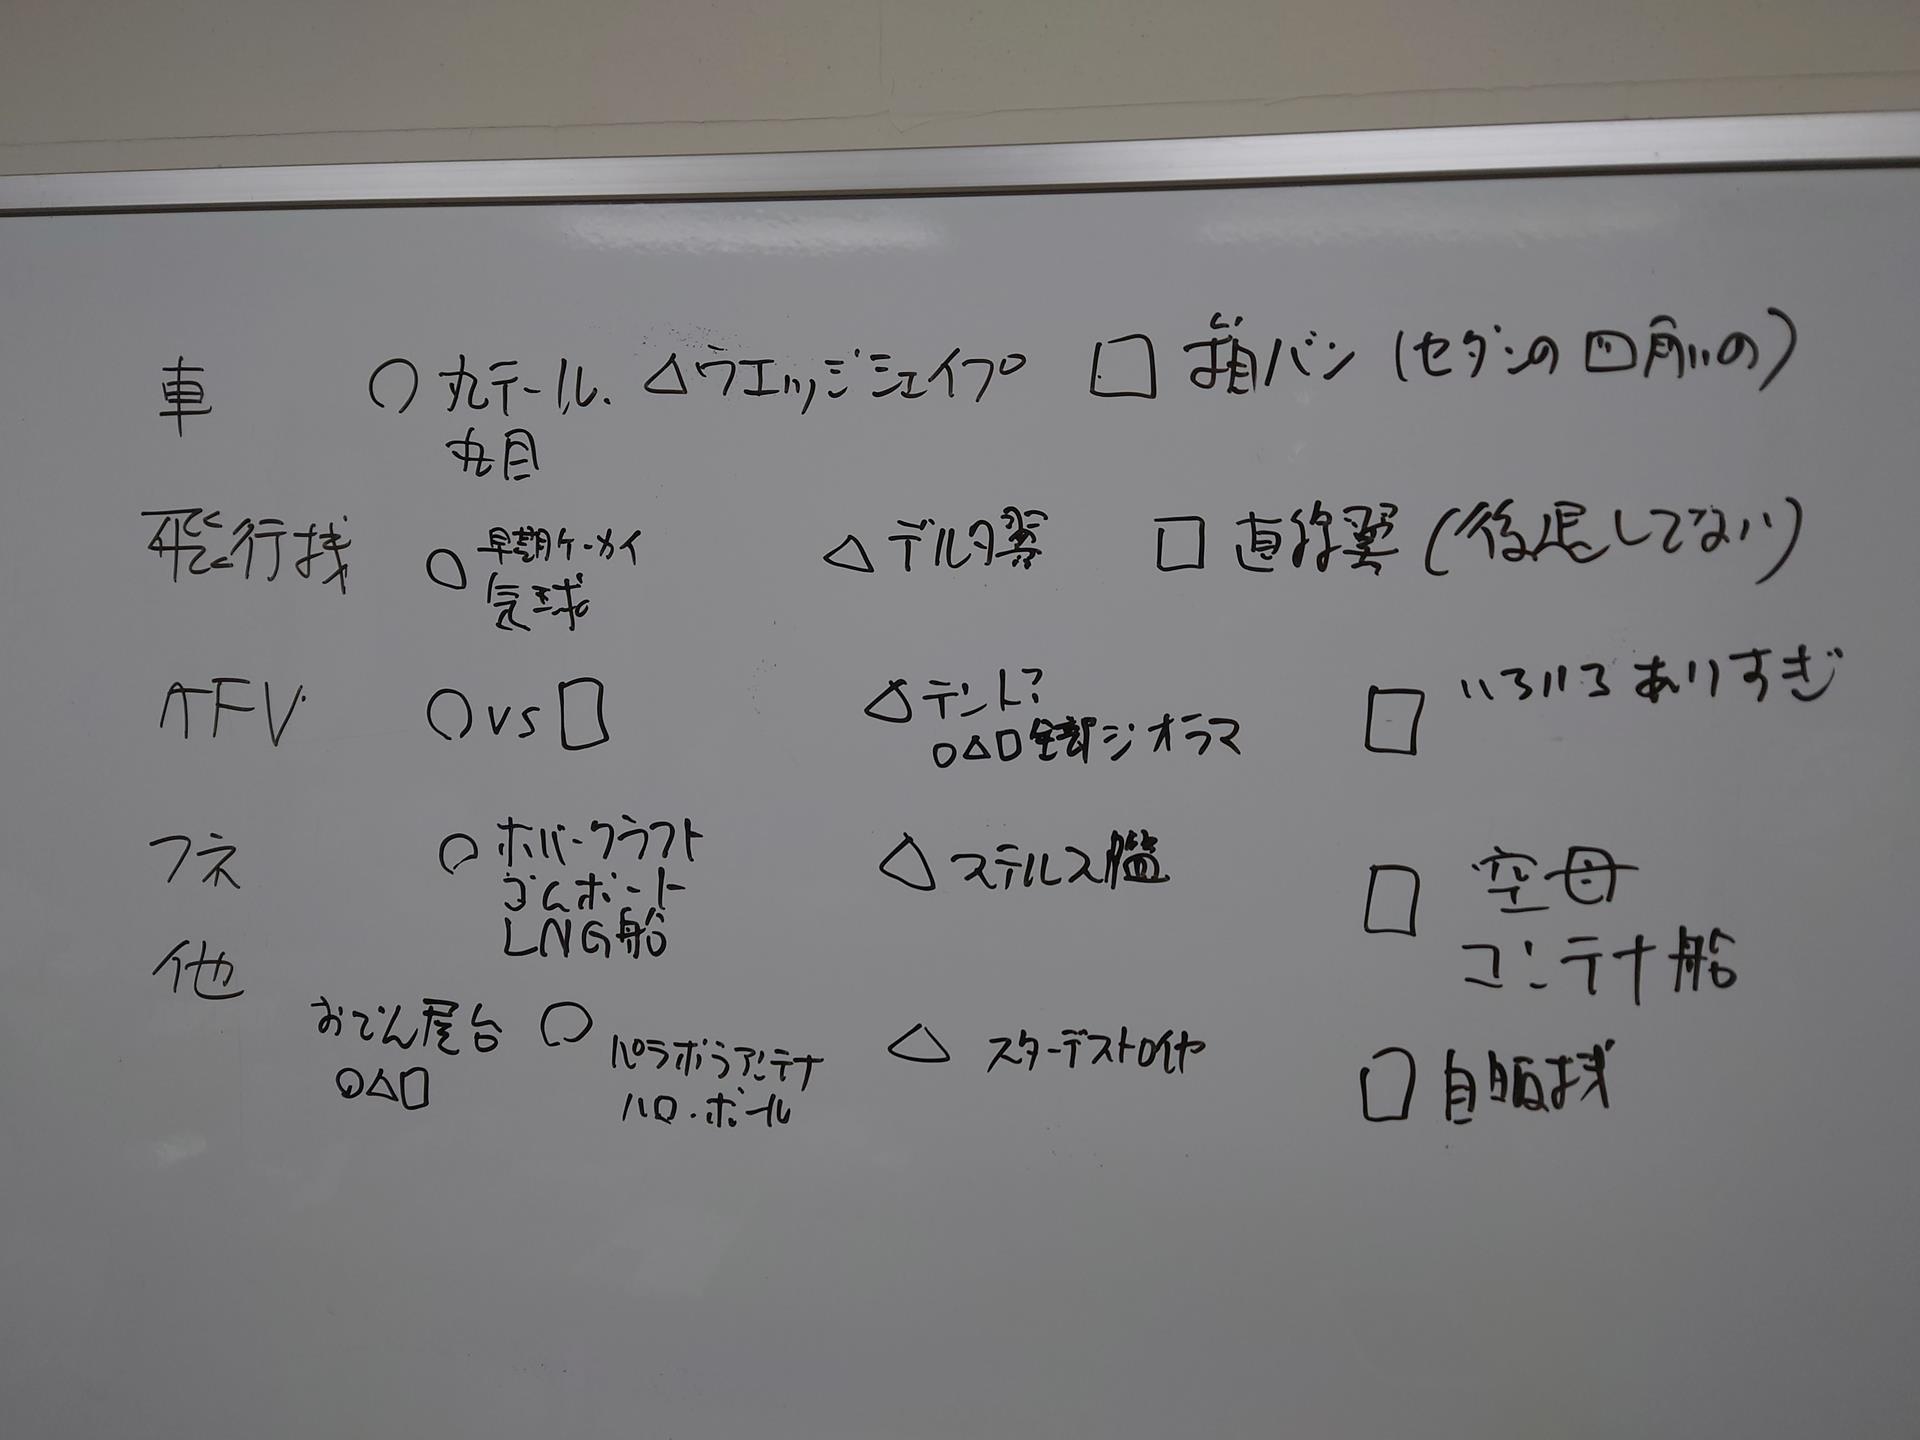 車 ○ 丸テール. △ウエッジシェイプ □ 箱バン (セダンの四角いの)
丸目
飛行機 ○ 早期ケーカイ △ デルタ翼 □ 直線翼 (後退してない)
気球
AFV ○ vs □ △ テント? □ いろいろありすぎ
○△□全部ジオラマ
フネ ○ ホバークラフト △ ステルス艦 □ 空母
ゴムボート
LNG船 コンテナ船
他
おでん屋台 ○ パラボラアンテナ △ スターデストロイヤ □ 自販機
○△□ ハロ・ボール